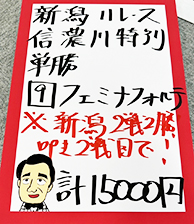 新潟11レース
信濃川特別
単勝
9 フェミナフォルテ
※新潟2戦2勝!
叩き2戦目で!
計15000円